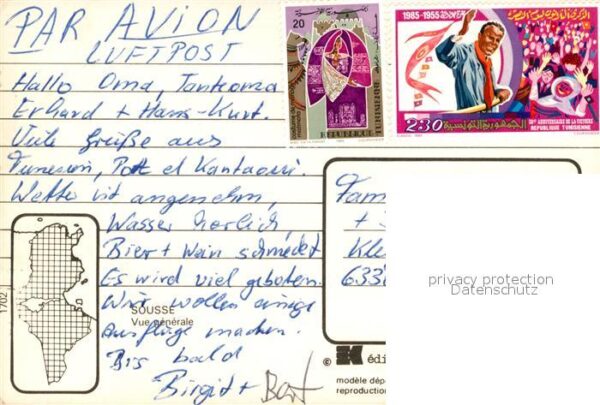 PAR AVION
LUFTPOST
Hallo Oma, Tanteoma
Erhard + Hans-Kurt.
Viele Grüße aus
Tunesien, Port el Kantaoui.
Wetter ist angenehm,
Wasser herlich,
Bier + Wein schmeckt
Es wird viel geboten.
Wir wollen einige
Ausflüge machen.
Bis bald
Birgit +
20
REPUBLIQUE TUNISIENNE
1985-1955
2:30
الجمهورية التونسية
30ème ANNIVERSAIRE DE LA VICTOIRE
REPUBLIQUE TUNISIENNE
Fam
+
Kle
633
privacy protection
Datenschutz
1702
SOUSSE
Vue générale
© édi
modèle dép
reproduction